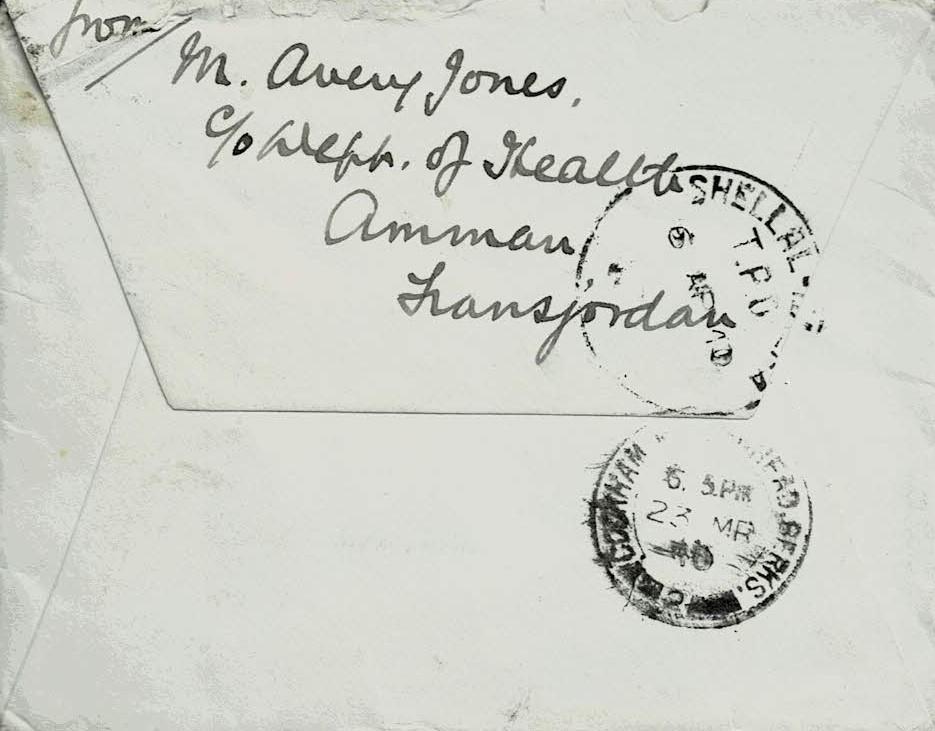 from
M. Avery Jones,
c/o Dept. of Health
Amman
Transjordan
SHELLAL
T.P.O
6 AP 40
COOKHAM BERKS.
6. PM
23 MR
40